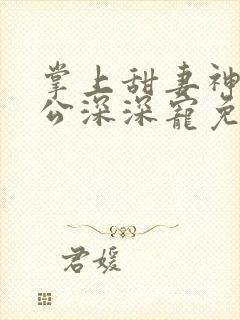 掌上甜妻神
公深深宠免
君媛